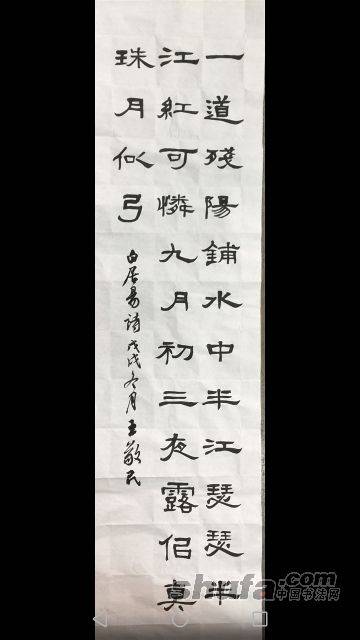 一道殘陽鋪水中半江瑟瑟半
江紅可憐九月初三夜露佀真
珠月似弓
白居易詩戊戌冬月王敬民
shufa.com
中国书法网